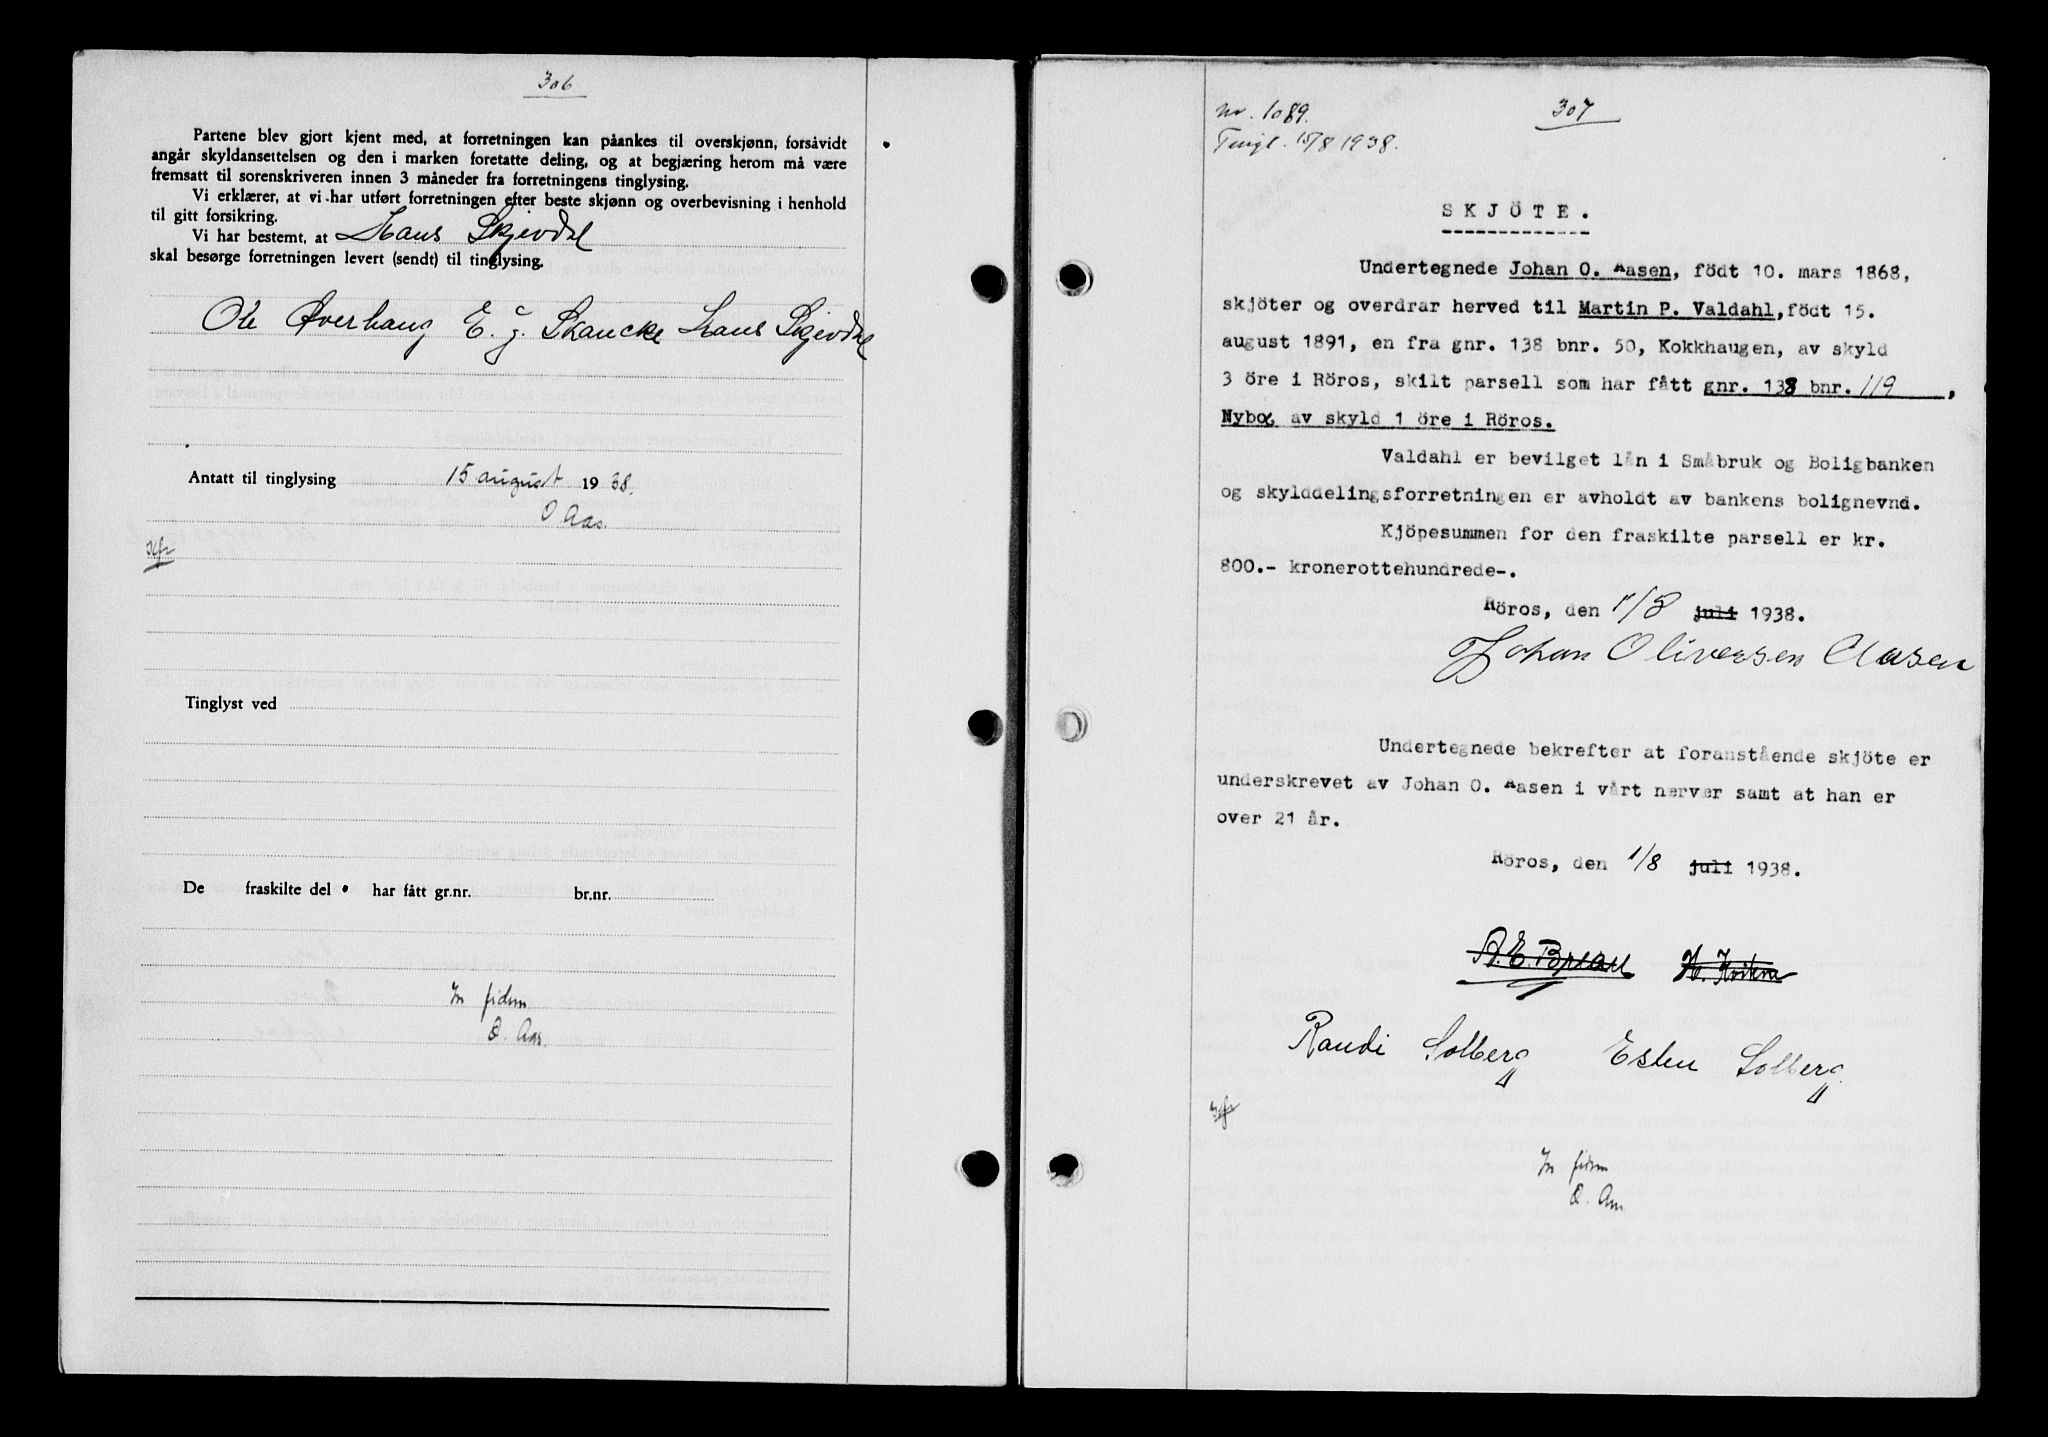 306
Partene blev gjort kjent med, at forretningen kan påankes til overskjønn, forsåvidt
angår skyldansettelsen og den i marken foretatte deling, og at begjæring herom må være
fremsatt til sorenskriveren innen 3 måneder fra forretningens tinglysing.
Vi erklærer, at vi har utført forretningen efter beste skjønn og overbevisning i henhold
til gitt forsikring.
Vi har bestemt, at Hans Skjevdal
skal besørge forretningen levert (sendt) til tinglysing.
Ole Øverhaug E. J. Skancke Hans Skjevdal
Antatt til tinglysing 15 august 1938.
O. Aas.
Tinglyst ved
De fraskilte del har fått gr.nr. br.nr.
In fidem
O. Aas.
nr. 1089.
307
Tingl. 15/8 1938.
SKJÖTE.
Undertegnede Johan O. Aasen, födt 10. mars 1868,
skjöter og overdrar herved til Martin P. Valdahl, födt 15.
august 1891, en fra gnr. 138 bnr. 50, Kokkhaugen, av skyld
3 öre i Röros, skilt parsell som har fått gnr. 138 bnr. 119,
Nybog av skyld 1 öre i Röros.
Valdahl er bevilget lån i Småbruk og Boligbanken
og skylddelingsforretningen er avholdt av bankens bolignevnd.
Kjöpesummen for den fraskilte parsell er kr.
800.- kronerottehundrede-.
Röros, den 1/8 juli 1938.
Johan Oliversen Aasen
Undertegnede bekrefter at foranstående skjöte er
underskrevet av Johan O. Aasen i vårt nærvær samt at han er
over 21 år.
Röros, den 1/8 juli 1938.
Randi Solberg Esten Solberg
In fidem
O. Aas